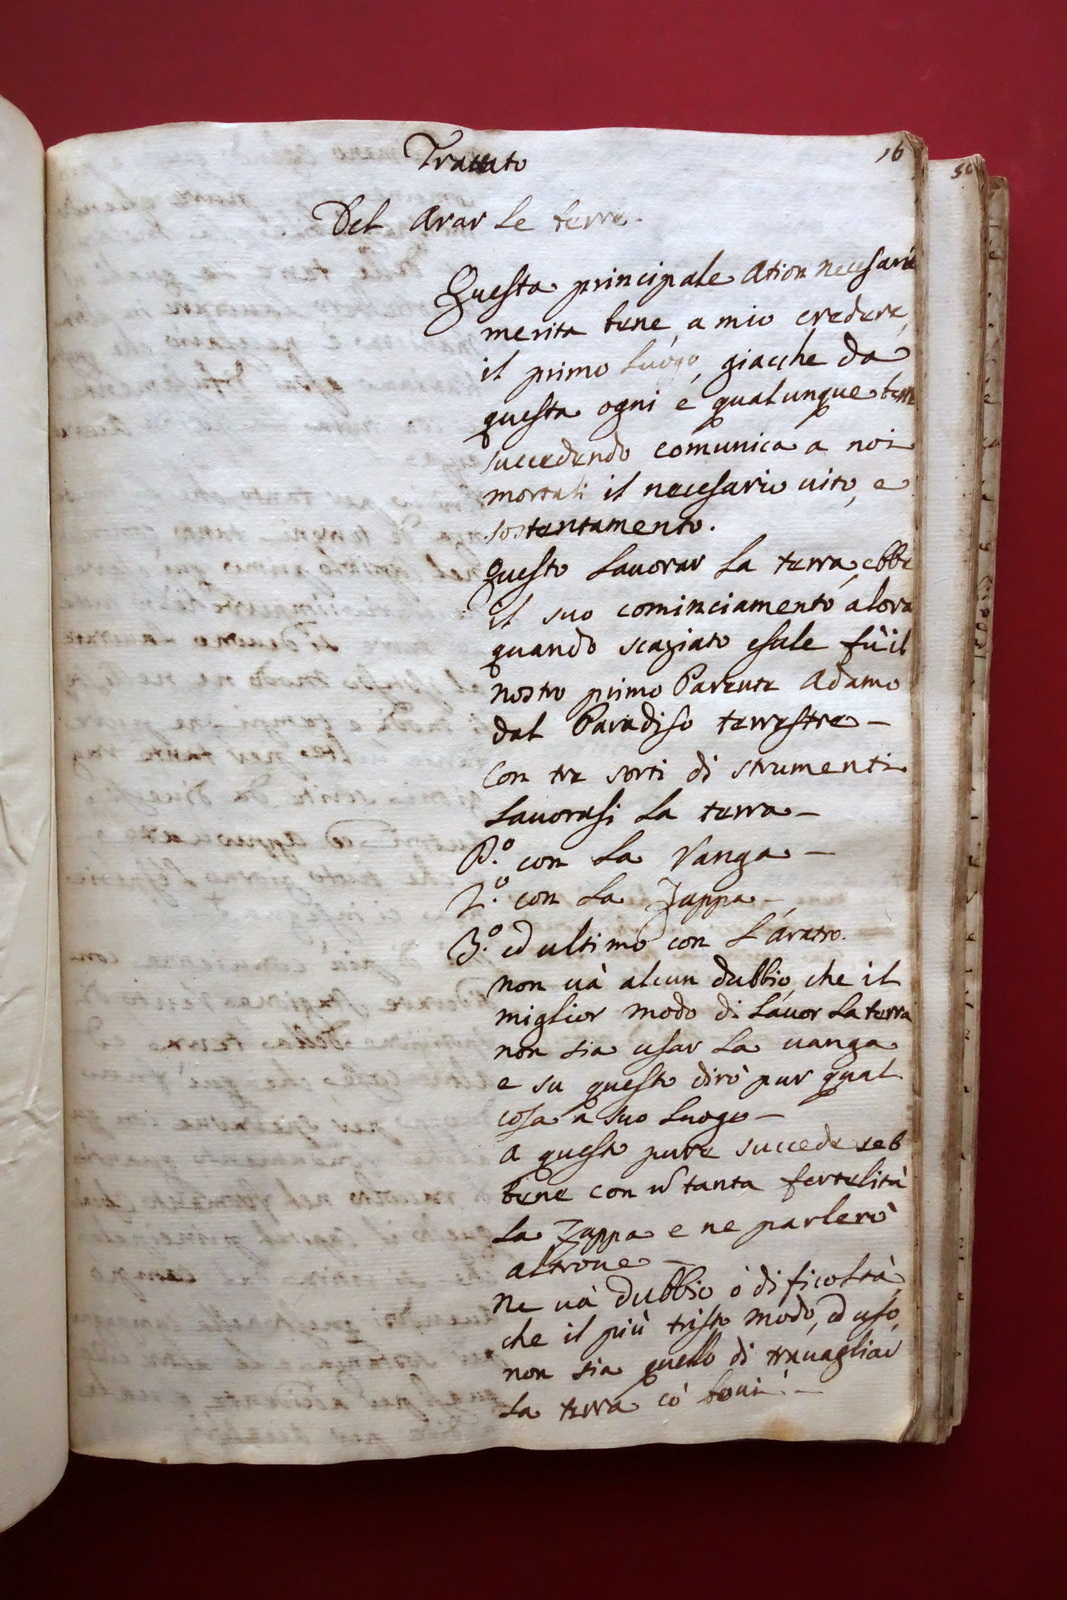 Trattato
16
Del Arar le terre.
Questa principale Ation necesaria
merita bene, a mio credere,
il primo Luogo, giacche da
questa ogni e qualunque bene
succedendo comunica a noi
mortali il necesario uito, e
sostentamento.
Questo Lauorar La terra, ebbe
il suo cominciamento alora
quando scagiato esule fù il
nostro primo Parente Adamo
dal Paradiso terrestre –
Con tre sorti di strumenti
Lauorasi La terra –
P.º con La Vanga –
2.º con La Zappa –
3.º ed ultimo con L'aratro.
non uà alcun dubbio, che il
miglior modo di Lauor La terra
non sia usar La uanga
e su questo dirò pur qual
cosa a suo Luogo –
A questo pure succede seb
bene con tanta fertelità
La Zappa e ne parlerò
altroue –
Ne uà dubbio ò dificoltà,
che il più tristo modo, ed uso,
non sia quello di trauagliar
La terra cò boui –